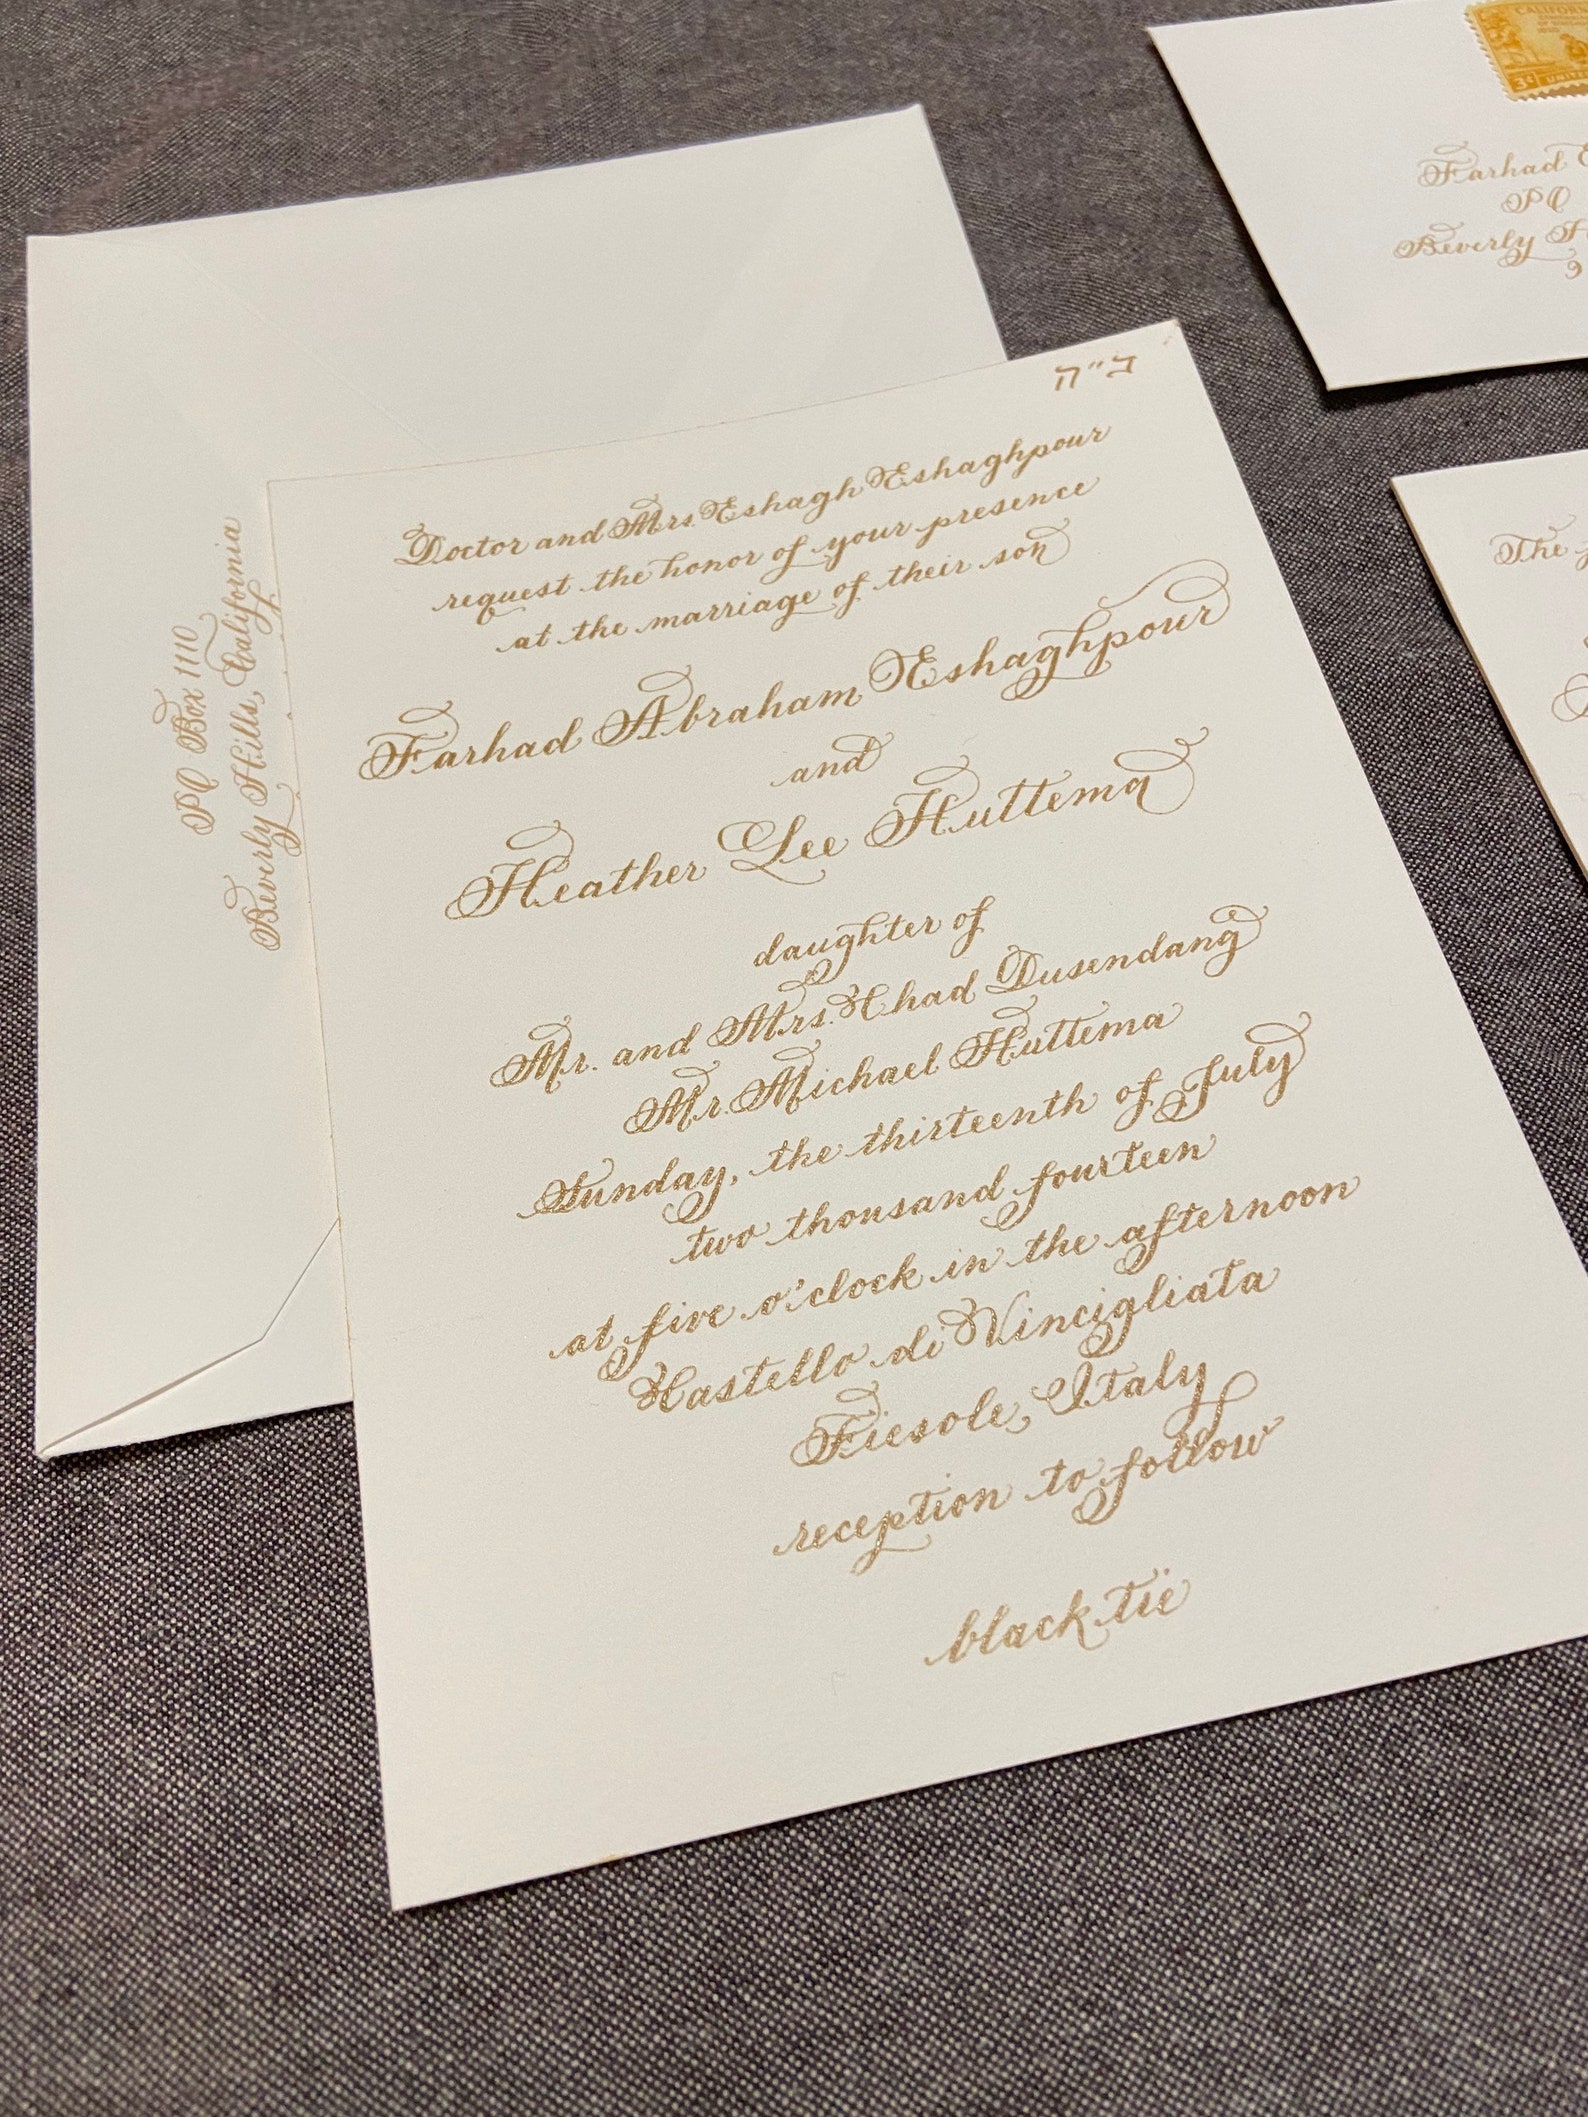 ב"ה
Doctor and Mrs. Eshagh Eshaghpour
request the honor of your presence
at the marriage of their son
Farhad Abraham Eshaghpour
and
Heather Lee Huttema
daughter of
Mr. and Mrs. Chad Dusendang
Mr. Michael Huttema
Sunday, the thirteenth of July
two thousand fourteen
at five o'clock in the afternoon
Castello di Vincigliata
Fiesole, Italy
reception to follow
black tie
PO Box 1110
Beverly Hills, California
CALIFOR
3¢ UNITE
Farhad E
PO
Beverly H
9
The